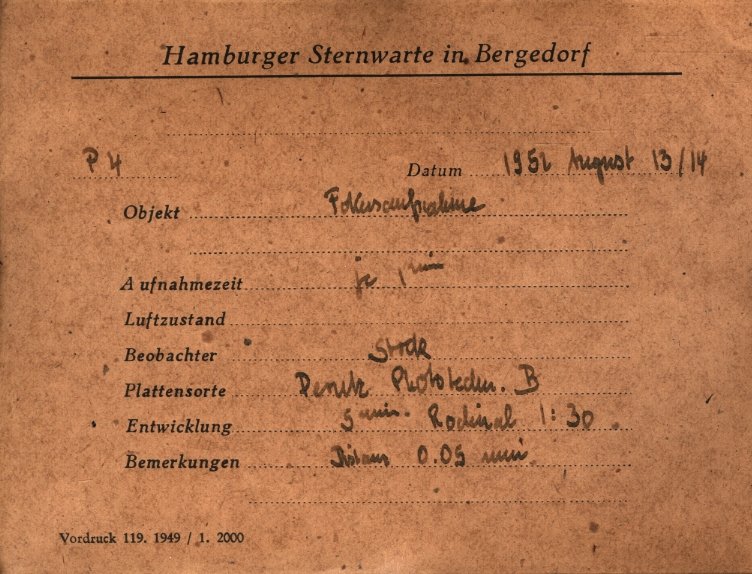 Hamburger Sternwarte in Bergedorf
P 4 Datum 1952 August 13/14
Objekt Fokusaufnahme
Aufnahmezeit je 1 min
Luftzustand
Beobachter Stock
Plattensorte Perutz Phototechn. B
Entwicklung 5 min. Rodinal 1:30
Bemerkungen 0.05 mm
Vordruck 119. 1949 / 1. 2000